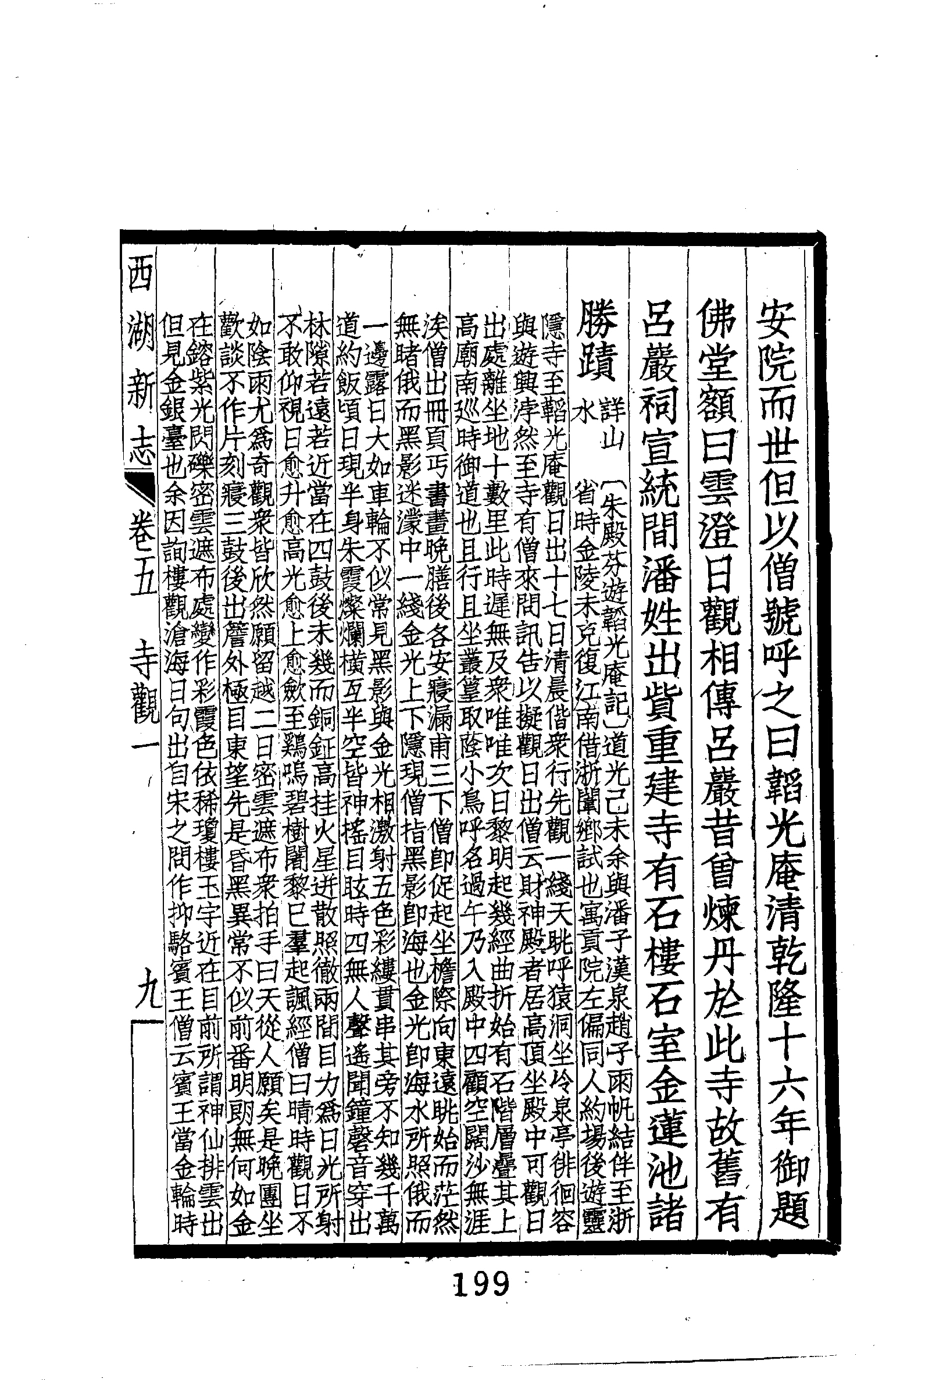 安院而世但以僧號呼之曰韜光庵清乾隆十六年御題
佛堂額曰雲澄日觀相傳呂巖昔曾煉丹於此寺故舊有
呂巖祠宣統間潘姓出貲重建寺有石樓石室金蓮池諸
勝蹟
詳山
水
〔朱殿芬遊韜光庵記〕道光己未余與潘子漢泉趙子雨帆結伴至浙
省時金陵未克復江南借浙闈鄉試也寓貢院左偏同人約揚後遊靈
隱寺至韜光庵觀日出十七日清晨偕衆行先觀一綫天眺呼猿洞坐冷泉亭徘徊容
與遊興浡然至寺有僧來問訊告以擬觀日出僧云財神殿者居高頂坐殿中可觀日
出處離坐地十數里此時遲無及衆唯唯次日黎明起幾經曲折始有石階層疊其上
高廟南巡時御道也且行且坐叢篁取蔭小鳥呼名過午乃入殿中四顧空闊沙無涯
涘僧出冊頁丐書畫晚膳後各安寢漏甫三下僧即促起坐檐際向東遠眺始而茫然
無睹俄而黑影迷濛中一綫金光上下隱現僧指黑影即海也金光即海水所照俄而
一邊露日大如車輪不似常見黑影與金光相激射五色彩縷貫串其旁不知幾千萬
道約飯頃日現半身朱霞燦爛橫亙半空皆神搖目眩時四無人聲遙聞鐘磬音穿出
林隙若遠若近當在四鼓後未幾而銅鉦高挂火星迸散照徹兩間目力爲日光所射
不敢仰視日愈升愈高光愈上愈歛至鷄鳴碧樹闇黎已羣起諷經僧曰晴時觀日不
如陰雨尤爲奇觀衆皆欣然願留越二日密雲遮布衆拍手曰天從人願矣是晚團坐
歡談不作片刻寢三鼓後出簷外極目東望先是昏黑異常不似前番明朗無何如金
在鎔紫光閃礫密雲遮布處變作彩霞色依稀瓊樓玉宇近在目前所謂神仙排雲出
但見金銀臺也余因詢樓觀滄海日句出自宋之問作抑駱賓王僧云賓王當金輪時
西湖新志 卷五 寺觀一 九
199